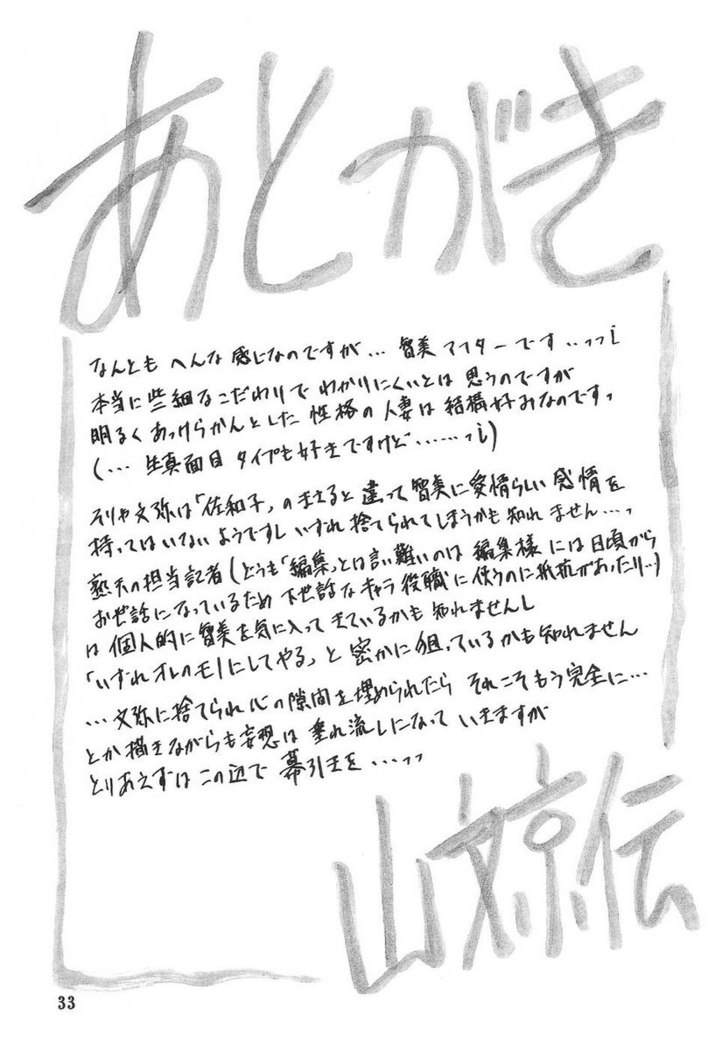 あとがき
なんとも へんな 感じなのですが… 智美 アフターです ‥ッッi
本当に些細なこだわりで わかりにくいとは 思うのですが
明るく あっけらかんとした 性格の 人妻は 結構好みなのですッ
(… 生真面目 タイプも好きですけど ……ッi)
そりゃ文弥は「佐和子」のときと 違って 智美に愛情らしい 感情を
持ってはいないようですし いずれ 捨てられてしまうかも知れ ません…ッ
熟天の担当記者(どうも「編集」とは言い難いのは 編集様 には 日頃から
お世話になっているため 下世話な キャラ 役職に 使うのに抵抗があったり…)
は 個人的に 智美を気に入って きているかも 知れませんし
「いずれオレのモノにしてやる」と 密かに 狙っているかも知れません
… 文弥に捨てられ 心の 隙間を 埋められたら それこそもう完全に…
とか 描きながらも妄想は 垂れ流しになって いきますが
とりあえずは この辺で 幕引きを …ッッ
山文京伝
33